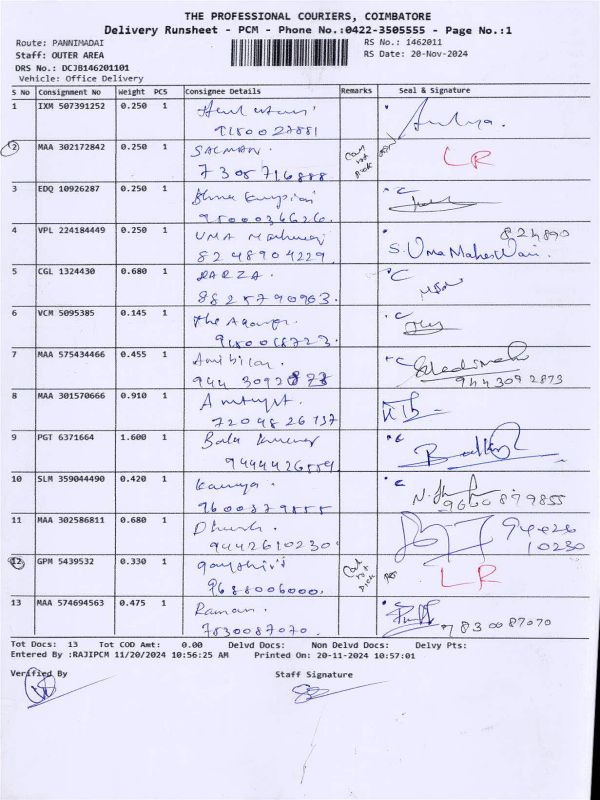 THE PROFESSIONAL COURIERS, COIMBATORE
Delivery Runsheet - PCM - Phone No.:0422-3505555 - Page No.:1
Route: PANNIMADAI
RS No.: 1462011
Staff: OUTER AREA
RS Date: 20-Nov-2024
DRS No.: DCJB146201101
Vehicle: Office Delivery
S No Consignment No Weight PCS Consignee Details Remarks Seal & Signature
1 IXM 507391252 0.250 1
2 MAA 302172842 0.250 1 SALMAN. Call not Pick LR
7305716888
3 EDQ 10926287 0.250 1 C
4 VPL 224184449 0.250 1 UMA 824890
8248904229 S. Uma Maheswari.
5 CGL 1324430 0.680 1 C
8825790903.
6 VCM 5095385 0.145 1 The C
7 MAA 575434466 0.455 1 C
944 3092873 9443092873
8 MAA 301570666 0.910 1
7204826137
9 PGT 6371664 1.600 1 Bala C
9444426559
10 SLM 359044490 0.420 1 Kaviya. C
9600879855 9600879855
11 MAA 302586811 0.680 1 94426
9442610230. 10230
12 GPM 5439532 0.330 1 Call not Pick LR
9688006000.
13 MAA 574694563 0.475 1 Raman.
7830087070. 7830087070
Tot Docs: 13 Tot COD Amt: 0.00 Delvd Docs: Non Delvd Docs: Delvy Pts:
Entered By :RAJIPCM 11/20/2024 10:56:25 AM Printed On: 20-11-2024 10:57:01
Verified By Staff Signature